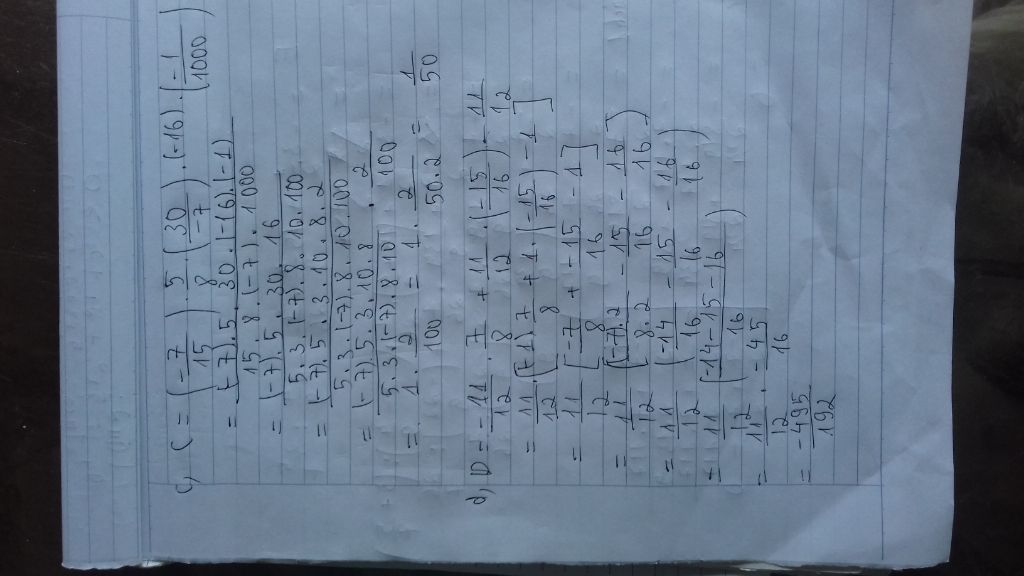 c, C = (-7/15) . 5/8 . (30/-7) . (-16) . (-1/1000)
= (-7).5.30.(-16).(-1) / 15.8.(-7).1000
= (-7).5.30.16 / 5.3.(-7).8.10.100
= (-7).5.3.10.8.2 / 5.3.(-7).8.10.100
= (-7).5.3.10.8 / 5.3.(-7).8.10 . 2/100
= 1 . 2/100 = 1 . 2/50.2 = 1/50
d, D = -11/12 . 7/8 + 11/12 . (-15/16) - 11/12
= 11/12 . [(-1)7/8 + 1.(-15/16) - 1]
= 11/12 [-7/8 + -15/16 - 1]
= 11/12 ((-7).2/8.2 - 15/16 - 16/16)
= 11/12 (-14/16 - 15/16 - 16/16)
= 11/12 (-14-15-16/16)
= 11/12 . -45/16
= -495/192